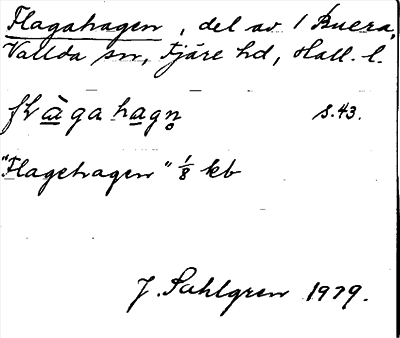 Flagahagen, del av 1 Buera,
Vallda sn, Fjäre hd, Hall. l.
s.43.
"Flagehagen" 1/8 kb
J. Sahlgren 1929.